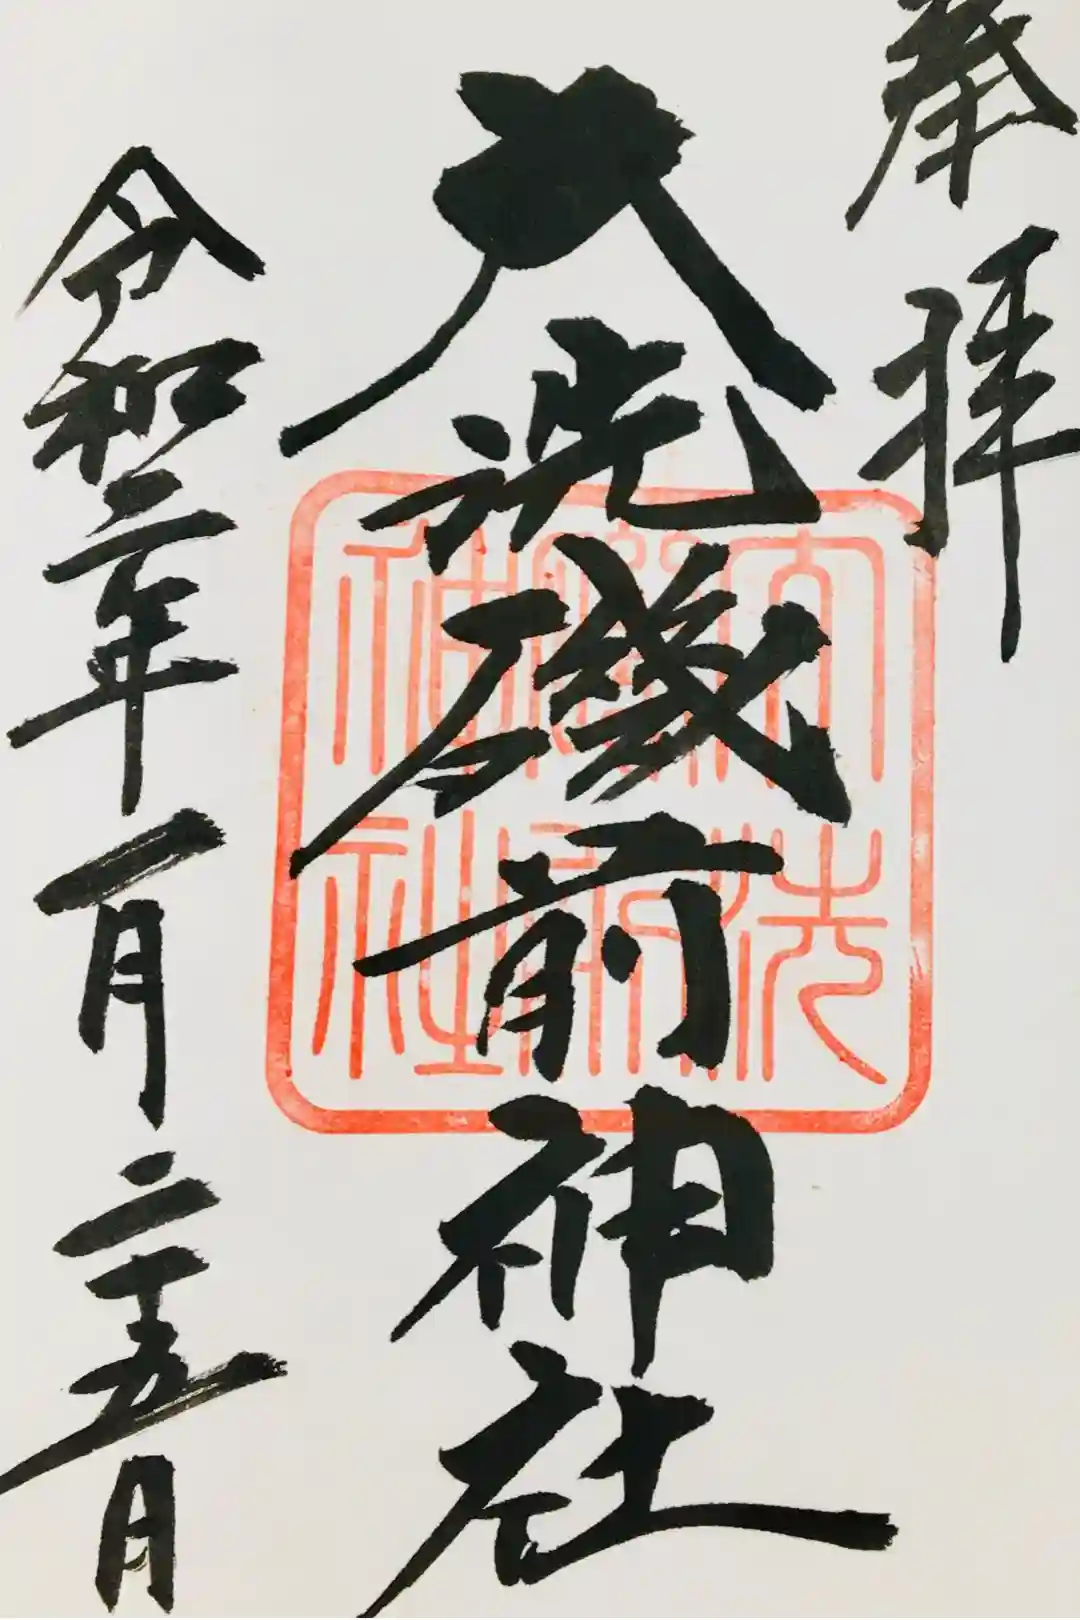 奉拝
大洗磯前神社
令和二年一月二十五日
大洗磯前神社